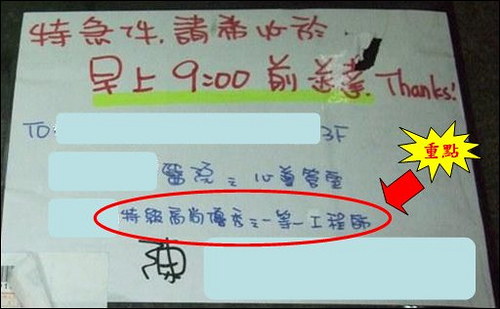 特急件,請希收於
早上 9:00 前送達. Thanks!
TO 3F
醫院之心導管室
重點
特級高尚優秀之一等一工程師